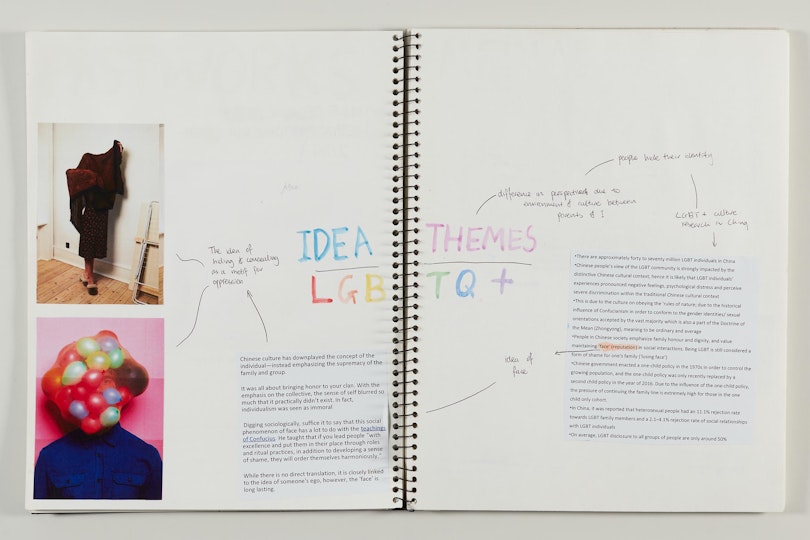 The idea of
hiding & concealing
as a motif for
oppression
Chinese culture has downplayed the concept of the
individual—instead emphasizing the supremacy of the
family and group.
It was all about bringing honor to your clan. With the
emphasis on the collective, the sense of self blurred so
much that it practically didn't exist. In fact,
individualism was seen as immoral
Digging sociologically, suffice it to say that this social
phenomenon of face has a lot to do with the teachings
of Confucius. He taught that if you lead people "with
excellence and put them in their place through roles
and ritual practices, in addition to developing a sense
of shame, they will order themselves harmoniously."
While there is no direct translation, it is closely linked
to the idea of someone's ego, however, the 'face' is
long lasting.
IDEA THEMES
LGBTQ +
people hide their identity
difference in perspectives due to
environment & culture between
parents & I
LGBT+ culture
research in China
idea of
face
•There are approximately forty to seventy million LGBT individuals in China
•Chinese people's view of the LGBT community is strongly impacted by the
distinctive Chinese cultural context, hence it is likely that LGBT individuals'
experiences pronounced negative feelings, psychological distress and perceive
severe discrimination within the traditional Chinese cultural context
•This is due to the culture on obeying the 'rules of nature; due to the historical
influence of Confucianism in order to conform to the gender identities/ sexual
orientations accepted by the vast majority which is also a part of the Doctrine of
the Mean (Zhongyong), meaning to be ordinary and average
•People in Chinese society emphasize family honour and dignity, and value
maintaining 'face (reputation) in social interactions. Being LGBT is still considered a
form of shame for one's family ('losing face')
•Chinese government enacted a one child policy in the 1970s in order to control the
growing population, and the one-child policy was only recently replaced by a
second child policy in the year of 2016. Due to the influence of the one child policy,
the pressure of continuing the family line is extremely high for those in the one
child only cohort.
•In China, it was reported that heterosexual people had an 11.1% rejection rate
towards LGBT family members and a 2.1–4.1% rejection rate of social relationships
with LGBT individuals
•On average, LGBT disclosure to all groups of people are only around 50%